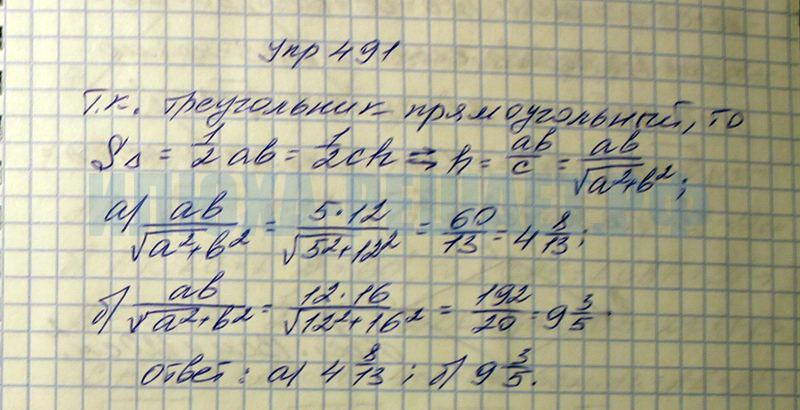 Упр 491
Т.к. треугольник прямоугольный, то
S△ = 1/2 ab = 1/2 ch ⇒ h = ab/c = ab/√(a²+b²);
а) ab/√(a²+b²) = 5·12/√(5²+12²) = 60/13 = 4 8/13;
б) ab/√(a²+b²) = 12·16/√(12²+16²) = 192/20 = 9 3/5.
Ответ: а) 4 8/13; б) 9 3/5.